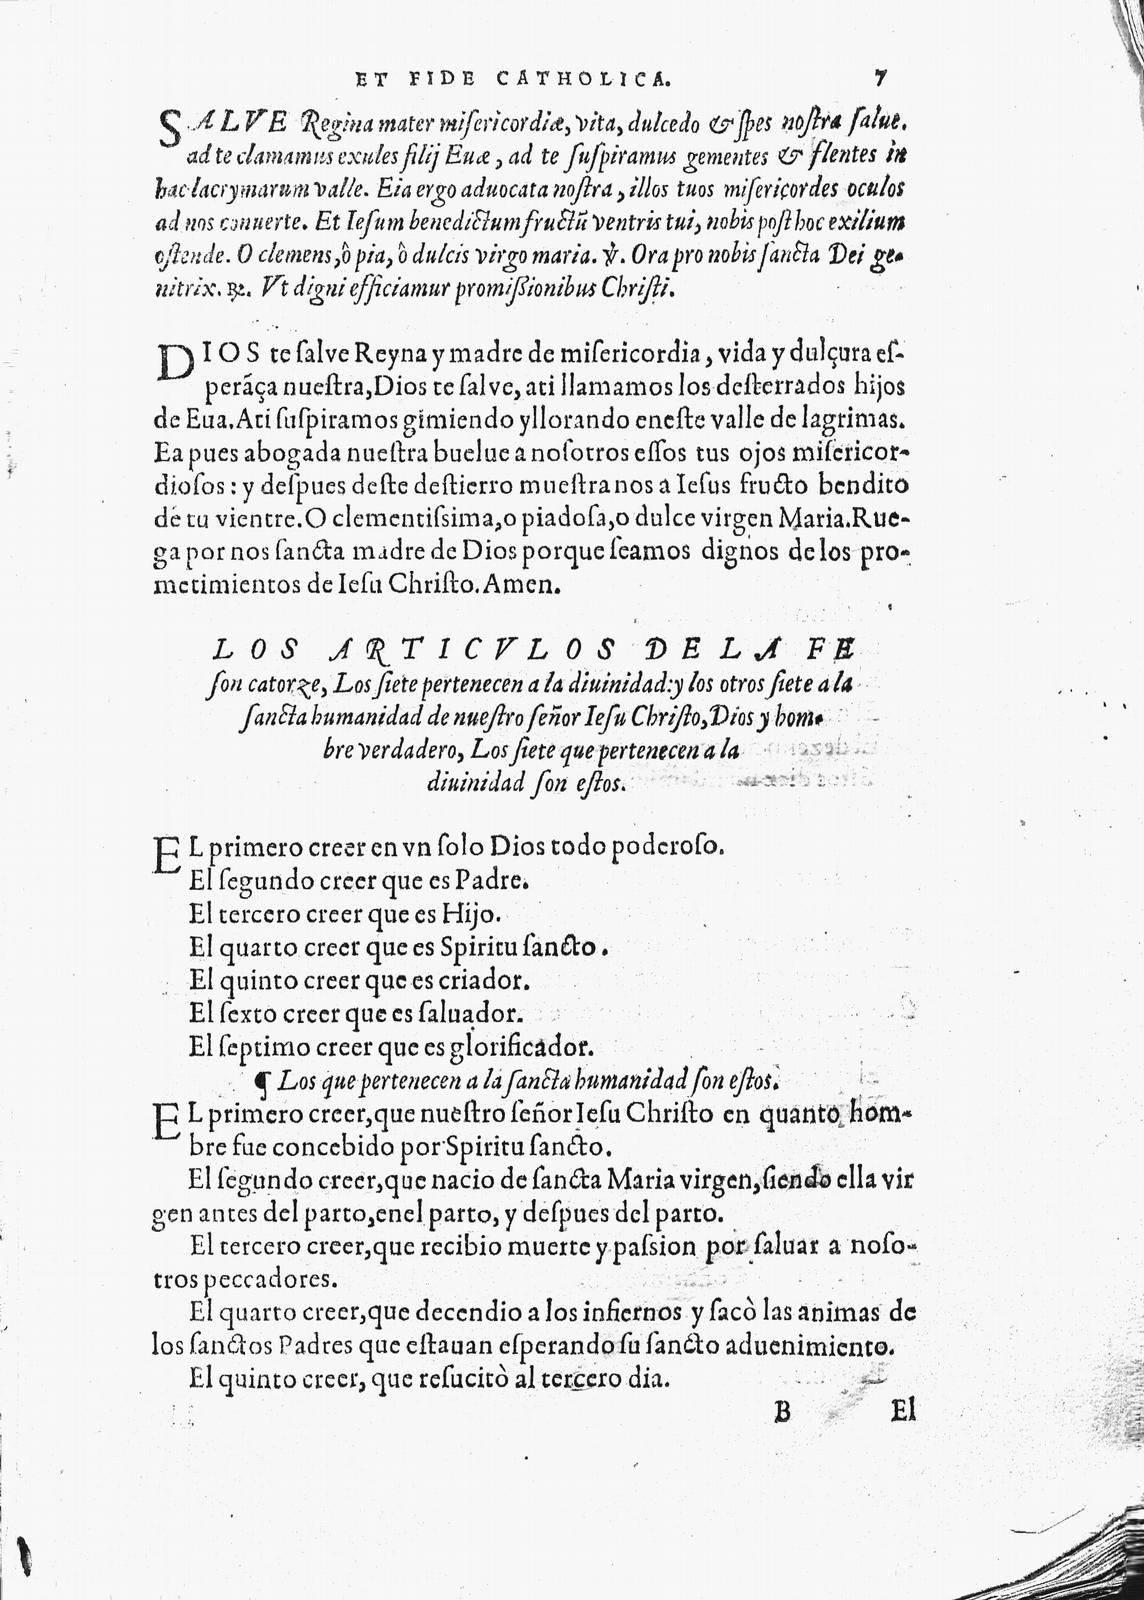 ET FIDE CATHOLICA. 7
SALVE Regina mater miſericordiæ, vita, dulcedo & ſpes noſtra ſalue.
ad te clamamus exules filij Euæ, ad te ſuſpiramus gementes & flentes in
hac lacrymarum valle. Eia ergo aduocata noſtra, illos tuos miſericordes oculos
ad nos conuerte. Et Ieſum benedictum fructũ ventris tui, nobis poſt hoc exilium
oſtende. O clemens, ô pia, ô dulcis virgo maria. ℣. Ora pro nobis ſancta Dei ge-
nitrix. ℞. Vt digni efficiamur promißionibus Chriſti.
DIOS te ſalve Reyna y madre de miſericordia, vida y dulçura eſ-
perãça nueſtra, Dios te ſalve, ati llamamos los deſterrados hijos
de Eua. Ati ſuſpiramos gimiendo yllorando eneſte valle de lagrimas.
Ea pues abogada nueſtra buelue a noſotros eſſos tus ojos miſericor-
dioſos: y deſpues deſte deſtierro mueſtranos a Ieſus fructo bendito
de tu vientre. O clementiſsima, o piadoſa, o dulce virgen Maria. Rue-
ga por nos ſancta madre de Dios porque ſeamos dignos de los pro-
metimientos de Ieſu Chriſto. Amen.
LOS ARTICVLOS DE LA FE
ſon catorze, Los ſiete pertenecen a la diuinidad: y los otros ſiete a la
ſancta humanidad de nueſtro ſeñor Ieſu Chriſto, Dios y hom-
bre verdadero, Los ſiete que pertenecen a la
diuinidad ſon eſtos.
EL primero creer en vn ſolo Dios todo poderoſo.
El ſegundo creer que es Padre.
El tercero creer que es Hijo.
El quarto creer que es Spiritu ſancto.
El quinto creer que es criador.
El ſexto creer que es ſaluador.
El ſeptimo creer que es glorificador.
¶ Los que pertenecen a la ſancta humanidad ſon eſtos.
EL primero creer, que nueſtro ſeñor Ieſu Chriſto en quanto hom-
bre fue concebido por Spiritu ſancto.
El ſegundo creer, que nacio de ſancta Maria virgen, ſiendo ella vir
gen antes del parto, enel parto, y deſpues del parto.
El tercero creer, que recibio muerte y paſsion por ſaluar a noſo-
tros peccadores.
El quarto creer, que decendio a los infiernos y ſacò las animas de
los ſanctos Padres que eſtauan eſperando ſu ſancto aduenimiento.
El quinto creer, que reſucitò al tercero dia.
B El